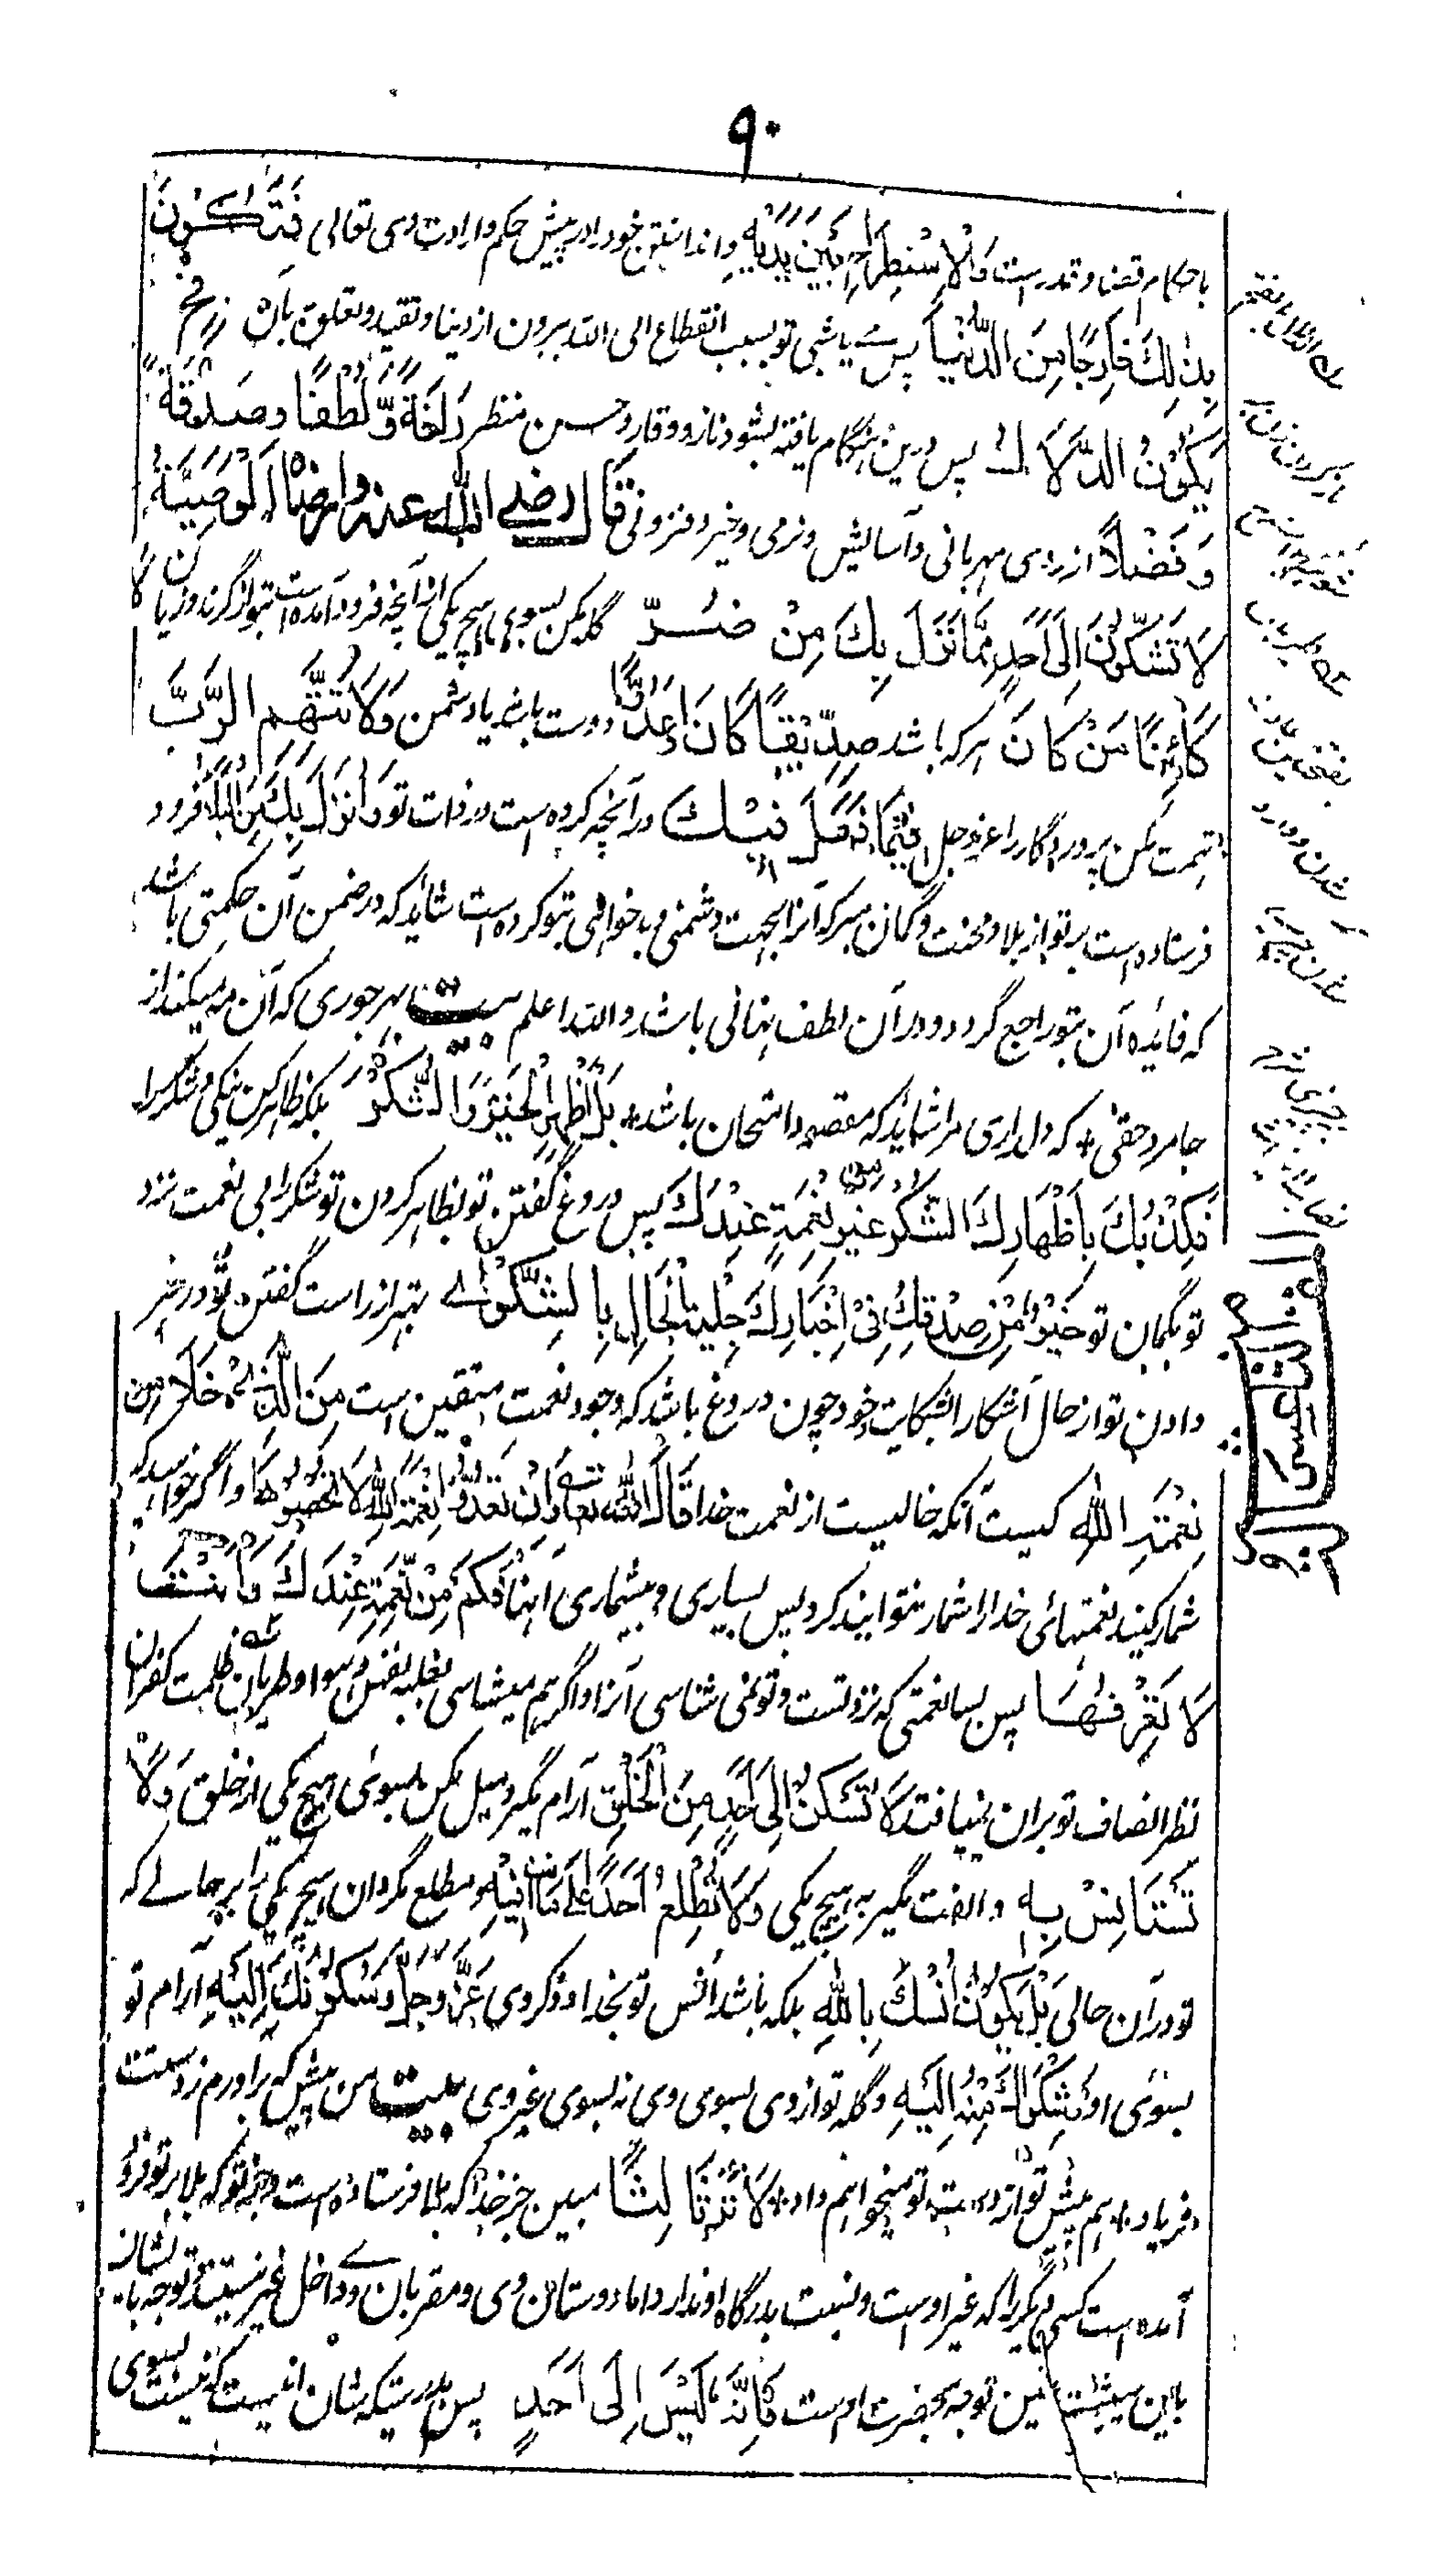 ۹۰
باحکام قضا و قدر است وَالْاِسْتِطْرَاحِ بَیْنَ یَدَیْهِ و انداختن خود را در پیش حکم و ارادت وی تعالی فَتَکُوْنَ
بِذٰلِكَ خَارِجًا مِنَ الدُّنْیَا پس می باشی تو بسبب انقطاع الی الله بیرون از دنیا و تقید و تعلق بآن
یَکُوْنُ الدَّلَالُ پس درین هنگام یافته بشود ناز و وقار و حسن منظر رَافَةً وَّ لُطْفًا و صَدَقَةً
وَ فَضْلًا از روی مهربانی و آسایش و نرمی و خیر و فزونی قَالَ رضی الله عنه وارضاه اَلْوَصِیَّةُ
لَا تَشْکُوَنَّ اِلٰی اَحَدٍ مِمَّا نَزَلَ بِكَ مِنْ ضُرٍّ گله مکن بسوی هیچ یکی از آنچه فرود آمده است بتو از گزند و زیان
کَائِنًا مَنْ کَانَ هر که باشد صِدِّیْقًا کَانَ اَوْ عَدُوًّا دوست باشد یا دشمن وَلَا تَتَّهِمِ الرَّبَّ
تهمت مکن پروردگار را عز و جل فِیْمَا فَعَلَ فِیْكَ در آنچه کرده است در ذات تو وَاَنْزَلَ بِكَ مِنَ الْبَلَاءِ فرود
فرستاده است بر تو از بلا و محنت و گمان مبر که آنرا بجهت دشمنی و بدخواهی بتو کرده است شاید که در ضمن آن حکمتی باشد
که فائده آن بتو راجع گردد و در آن لطف نهانی باشد والله اعلم بیت بهر جوری که آن مه میکند از
جا مرو حقی * که دلداری مرا شاید که مقصود امتحان باشد * بَلْ اَظْهِرِ الْخَیْرَ وَالشُّکْرَ بلکه ظاهر کن نیکی و شکر را
فَکِذْبُكَ بِاِظْهَارِكَ الشُّکْرَ مِنْ غَیْرِ نِعْمَةٍ عِنْدَكَ پس دروغ گفتن تو بظاهر کردن تو شکر را بی نعمت نزد
تو بگمان تو خَیْرٌ مِّنْ صِدْقِكَ فِیْ اِخْبَارِكَ جَلِیَّةَ الْحَالِ بِالشَّکْوٰی بهتر از راست گفتن تو در خبر
دادن تو از حال آشکارا بشکایت خود چون دروغ باشد که وجود نعمت متیقین است مَنِ الَّذِیْ خَلَا مِنْ
نِعْمَةِ اللهِ کیست آنکه خالیست از نعمت خدا قَالَ اللهُ تَعَالٰی وَاِنْ تَعُدُّوْا نِعْمَةَ اللهِ لَا تُحْصُوْهَا و اگر خواهید که
شمار کنید نعمتهای خدا را شمار نتوانید کرد بس بسیاری و بیشماری آنها فَکَمْ مِنْ نِّعْمَةٍ عِنْدَكَ وَاَنْتَ
لَا تَعْرِفُهَا پس بسا نعمتی که نزد تست و تو نمی شناسی آنرا و اگر هم میشناسی بغلبه نفس و هوا و طریان ظلمت کفران
نظر انصاف تو بران نیفتد لَا تَسْکُنْ اِلٰی اَحَدٍ مِنَ الْخَلْقِ آرام مگیر و میل مکن بسوی هیچ یکی از خلق وَلَا
تَسْتَانِسْ بِهٖ و الفت مگیر به هیچ یکی وَلَا تُطْلِعْ اَحَدًا عَلٰی مَا اَنْتَ فِیْهِ و مطلع مگردان هیچ یکی را بر حالی که
تو در آن حالی بَلْ یَکُوْنُ اُنْسُكَ بِاللهِ بلکه باشد انس تو بخدا و ذکر وی عَزَّ وَ جَلَّ وَسُکُوْنُكَ اِلَیْهِ آرام تو
بسوی او وَشَکْوَاكَ مِنْهُ اِلَیْهِ و گله تو از وی بسوی وی نه بسوی غیر وی بیت من پیش که برآورم ز دستت
فریاد * هم پیش تو از دست تو میخواهم داد * لَا تَرَ ثَالِثًا مبین جز خدا که بلا فرستاده است و جز تو که بلا بر تو فرود
آمده است کسی دیگر را که غیر اوست و نسبت بدرگاه او ندارد اما دوستان وی و مقربان وی داخل غیر نیستند و توجه بایشان
باین حیثیت عین توجه بحضرت اوست فَاِنَّهٗ لَیْسَ اِلٰی اَحَدٍ پس بدرستیکه شان اینست که نیست بسوی